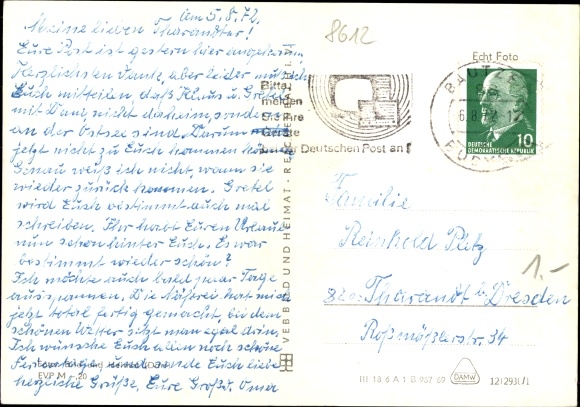 Am 5.8.72.
Meine lieben Tharandter!
Eure Post ist gestern hier angekommen
Herzlichsten Dank, aber leider muß ich
Euch mitteilen, daß Klaus u. Gretel
mit Dani nicht daheim, sondern
an der Ostsee sind. Darum
jetzt nicht zu Euch kommen
Genau weiß ich nicht, wann sie
wieder zurück kommen. Gretel
wird Euch bestimmt auch mal
schreiben. Ihr habt Euren Urlaub
nun schon hinter Euch. Es war
bestimmt wieder schön?
Ich möchte auch bald paar Tage
ausspannen. Die Näherei hat mich
jetzt total fertig gemacht, bei dem
schönen Wetter sitzt man egal drin.
Ich wünsche Euch allen noch schöne
Ferientage und sende Euch liebe
herzliche Grüße, Eure Großm. Oma
EVP M -,20
VEB BILD UND HEIMAT
8612
Echt Foto
Bitte
melden
Sie Ihre
Geräte
bei der Deutschen Post an!
BAUTZEN
6.8.72
10
DEUTSCHE
DEMOKRATISCHE REPUBLIK
Familie
Reinhold Pletz
1.-
8210 Tharandt b. Dresden
Roßmäßlerstr. 34
III 18 6 A 1 B 967 69
DAMW
12/2931/1